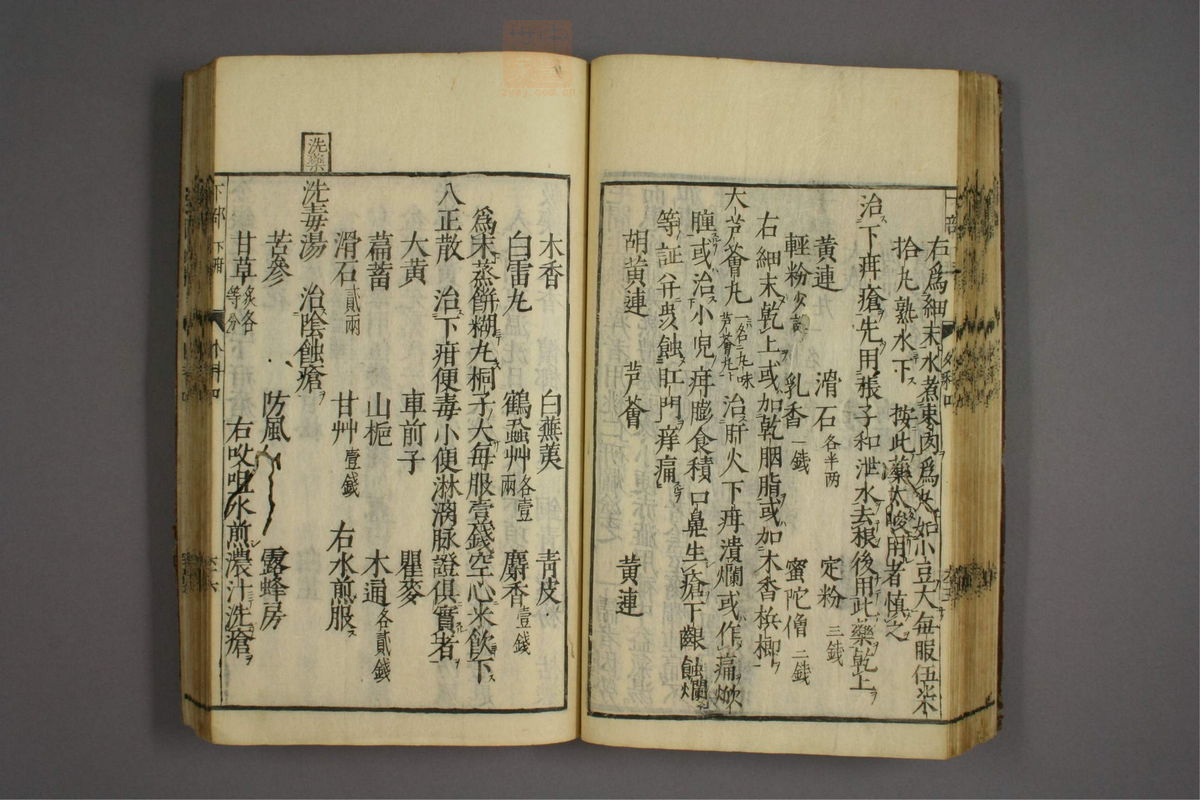 右爲細末水煮棗肉爲丸如小豆大每服伍米
拾丸熟水下 按此藥太峻用者慎之
治下疳瘡先用張子和泄水去根後用此藥乾上
黄連 滑石各半两 定粉三錢
輕粉少許 乳香一錢 蜜陀僧二錢
右細末乾上或加乾胭脂或加木香梹榔
大芦薈丸一名九味芦薈丸 治肝火下疳潰爛或作痛焮
腫或治小児疳膨食積口鼻生瘡下齦蝕爛
等証并虫蝕肛門痒痛
胡黄連 芦薈 黄連
木香 白蕪荑 青皮
白雷丸 鶴蝨艸各壹兩 麝香壹錢
爲末蒸餅糊丸桐子大每服壹錢空心米飲下
八正散 治下疳便毒小便淋漓脉證俱實者
大黄 車前子 瞿麥
萹蓄 山梔 木通各貳錢
滑石貳兩 甘艸壹錢 右水煎服
洗藥
洗毒湯 治陰蝕瘡
苦參 防風 露蜂房
甘草炙各等分 右㕮咀水煎濃汁洗瘡
下部 下疳 外科四